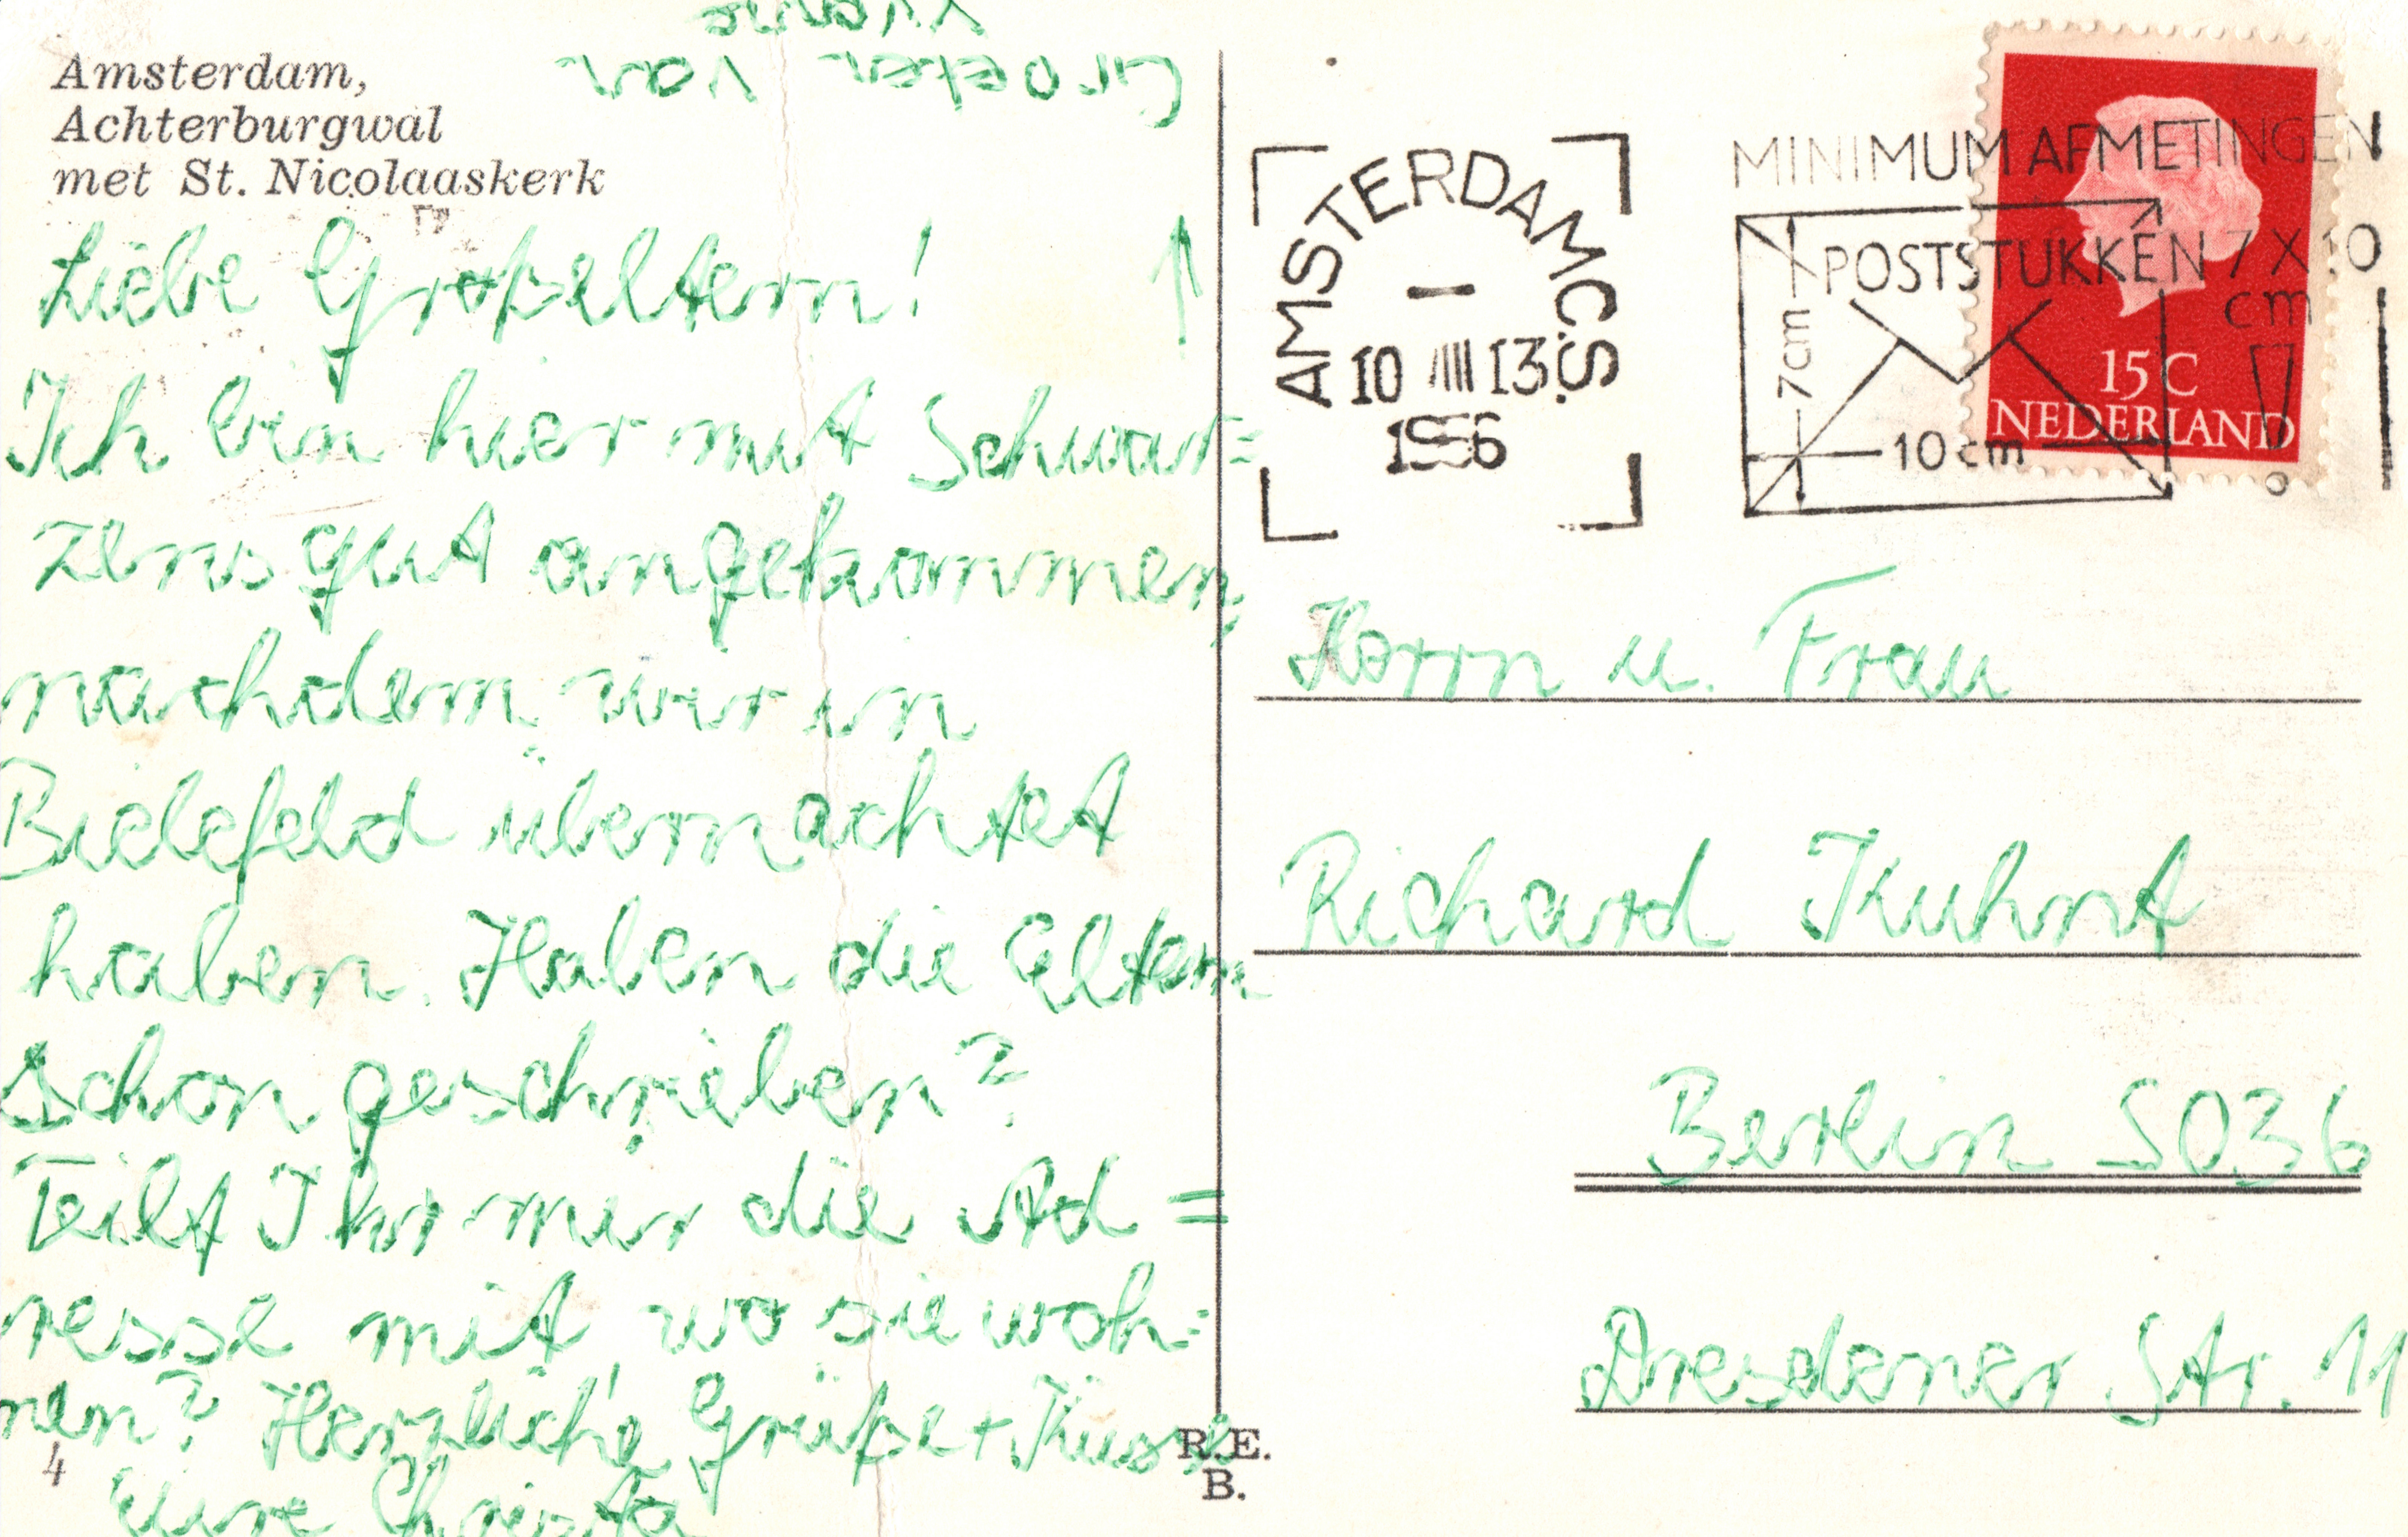 Amsterdam,
Achterburgwal
met St. Nicolaaskerk
Groeten van
Liebe Großeltern!
Ich bin hier mit Schwar=
zens gut angekommen,
nachdem wir in
Bielefeld übernachtet
haben. Haben die Eltern
schon geschrieben?
Teilt Ihr mir die Ad=
resse mit, wo sie woh=
nen? Herzliche Grüße + Küsse
Eure Christa
4
R.E.
B.
AMSTERDAM C.S.
10 VIII 13
1956
MINIMUM AFMETINGEN
POSTSTUKKEN 7 X 10
cm
7cm
10 cm
!
15 C
NEDERLAND
Herrn u. Frau
Richard Kuhnt
Berlin SO36
Dresdener Str. 11